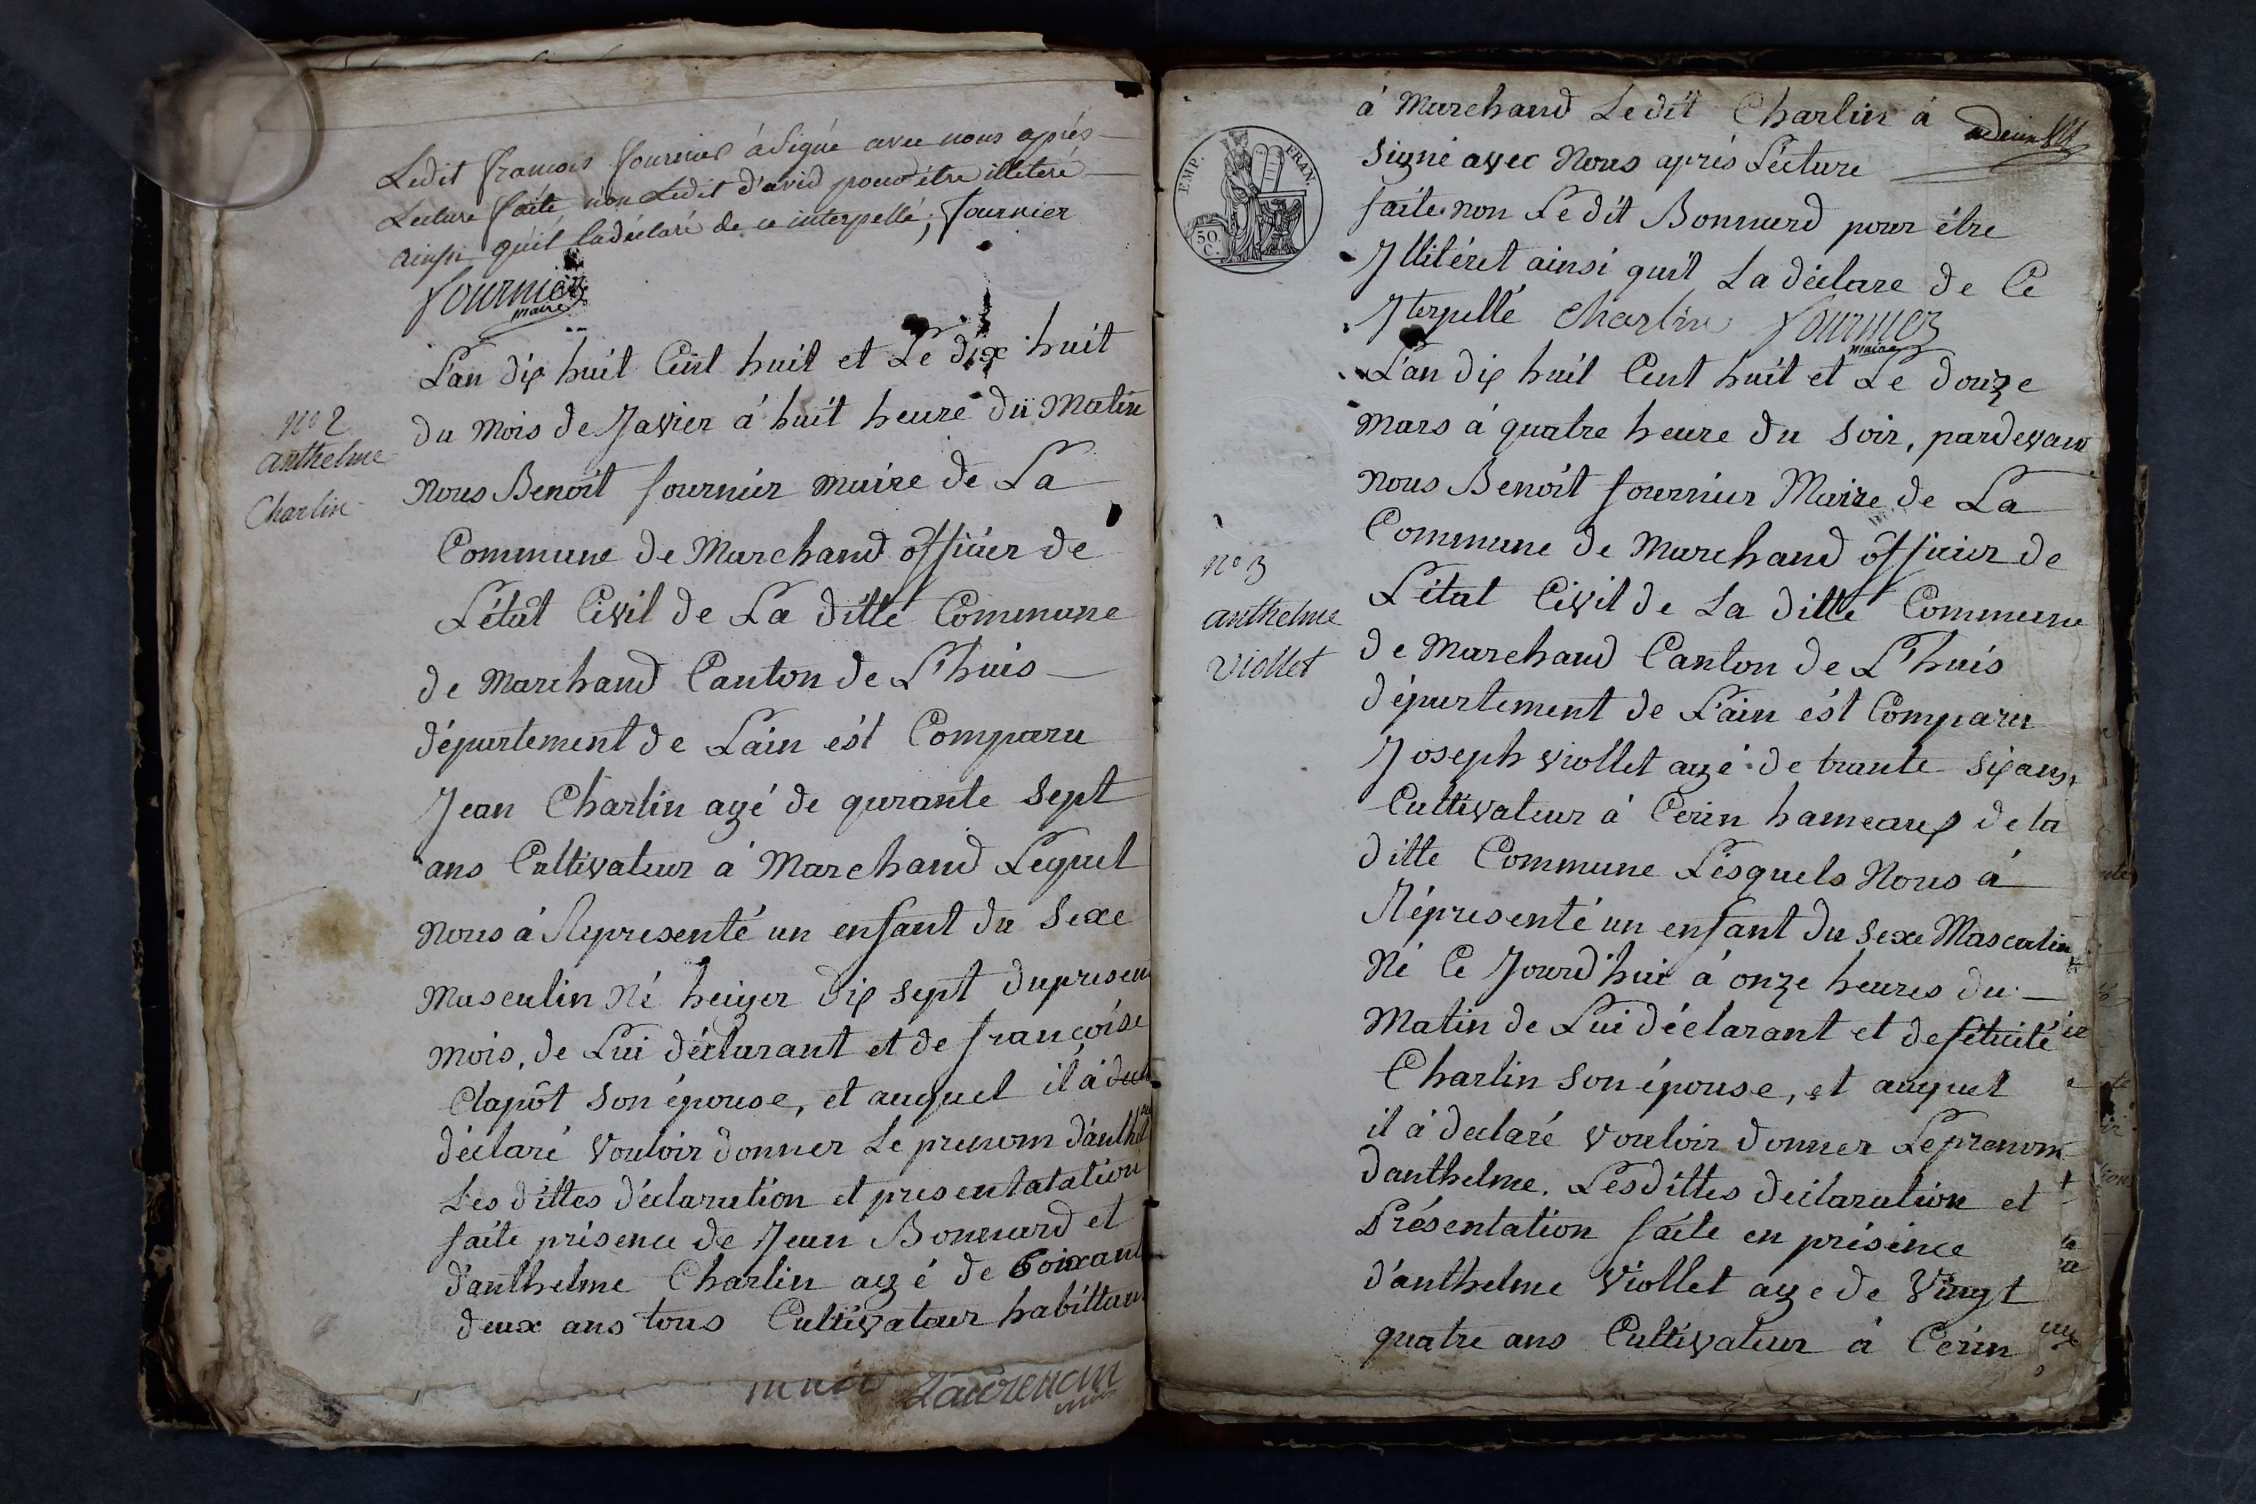 Ledit francois fournier à signé avec nous aprés
Lecture faite non Ledit d'avid pour être illiteré
ainsi qu'il la déclaré de ce interpellé; fournier
fournier
maire
L'an dix huit Cent huit et Le dix huit
du mois de Javier à huit heure du Matin
nous Benoit fournier maire de La
Commune de Marchand officier de
L'état Civil de La ditte Commune
de Marchand Canton de L'huis
département de L'ain ést Comparu
Jean Charlin agé de qurante sept
ans Cultivateur à Marchand Lequel
nous à Representé un enfant du sexe
masculin Né heiyer dix sept du presen
mois, de Lui déclarant et de françoise
Clapôt son épouse, et auquel il à
déclaré vouloir donner Le prenom d'anthel
Les dittes déclaration et presentatation
faite présence de Jean Bonnard et
d'anthelme Charlin agé de Soixant
deux ans tous Cultivateur habittan
n° 2
anthelme
Charlin
Laurencin
EMP. FRAN.
50
C.
à Marchand Ledit Charlin à
signé avec Nous aprés Lécture
faite non Le dit Bonnard pour être
Jllitéret ainsi quil La déclare de Ce
Jterpellé Charlin fournier
maire
L'an dix huit Cent huit et Le douze
mars à quatre heure du soir, pardevan
nous Benoit fournier Maire de La
Commune de Marchand officier de
L'état Civil de La ditte Commune
de Marchand Canton de L'huis
département de L'ain ést Comparu
Joseph viollet agé de trante six ans,
Cultivateur à Cerin hameaux de la
ditte Commune Lésquels Nous à
Répresenté un enfant du sexe Masculin
Né Ce Jourd'hui à onze heures du
Matin de Lui déclarant et de félicité
Charlin son épouse, et auquel
il à declaré vouloir donner Le prenom
d'anthelme. Lesdittes déclaration et
Présentation faite en présence
d'anthelme Viollet age de Vingt
quatre ans Cultivateur à Cerin
n° 3
anthelme
viollet